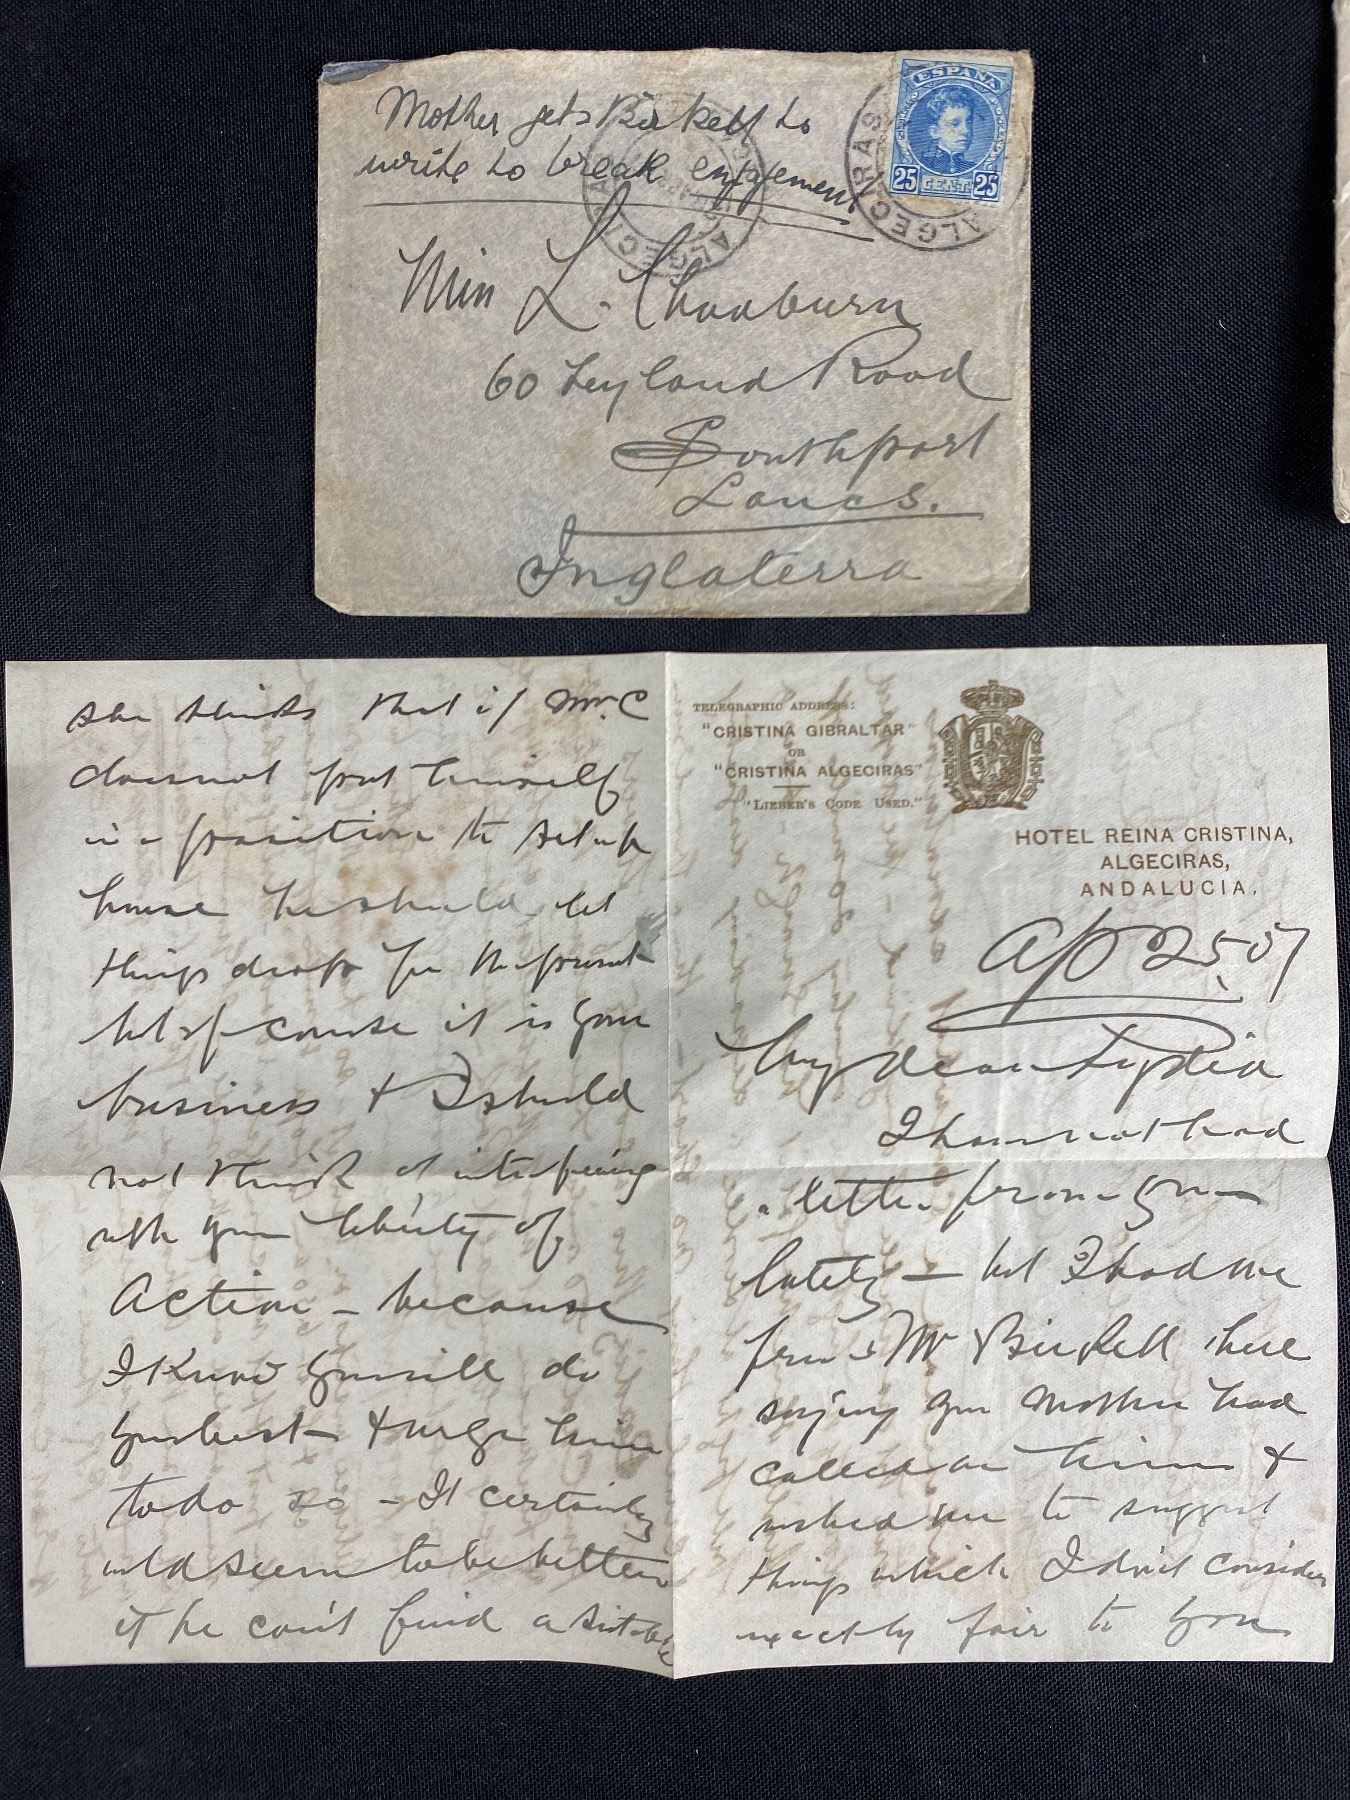 Mother gets Birkett to
write to break engagement
ESPAÑA
25 CENT 25
ALGECIRAS
ALGECIRAS
Miss L.
60 Leyland Road
Southport
Lancs.
Inglaterra
she thinks that if Mr. C
does not put himself
in a position to set up
house he should let
things drop for the present
but of course it is your
business & I should
not think of interfering
with your liberty of
Action — because
I know you will do
your best & urge him
to do so — It certainly
wld seem to be better
if he can't find a suitable
TELEGRAPHIC ADDRESS:
"CRISTINA GIBRALTAR"
OR
"CRISTINA ALGECIRAS"
"LIEBER'S CODE USED."
HOTEL REINA CRISTINA,
ALGECIRAS,
ANDALUCIA.
Ap 25, 07
My dear Lydia
I have not had
a letter from you
lately — but I had one
from Mr Birkett here
saying your Mother had
called on him &
wished me to suggest
things which I don't consider
exactly fair to you